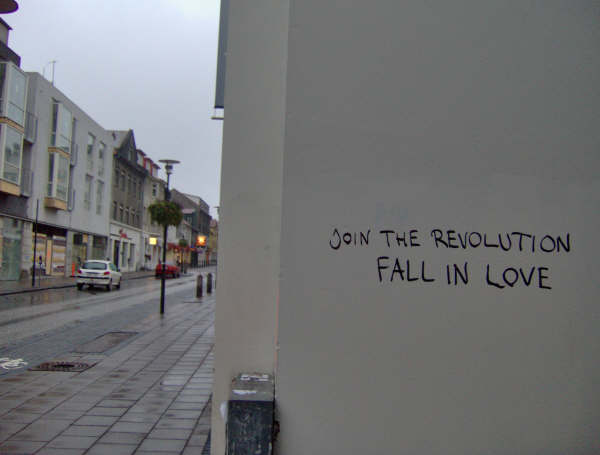 JOIN THE REVOLUTION
FALL IN LOVE